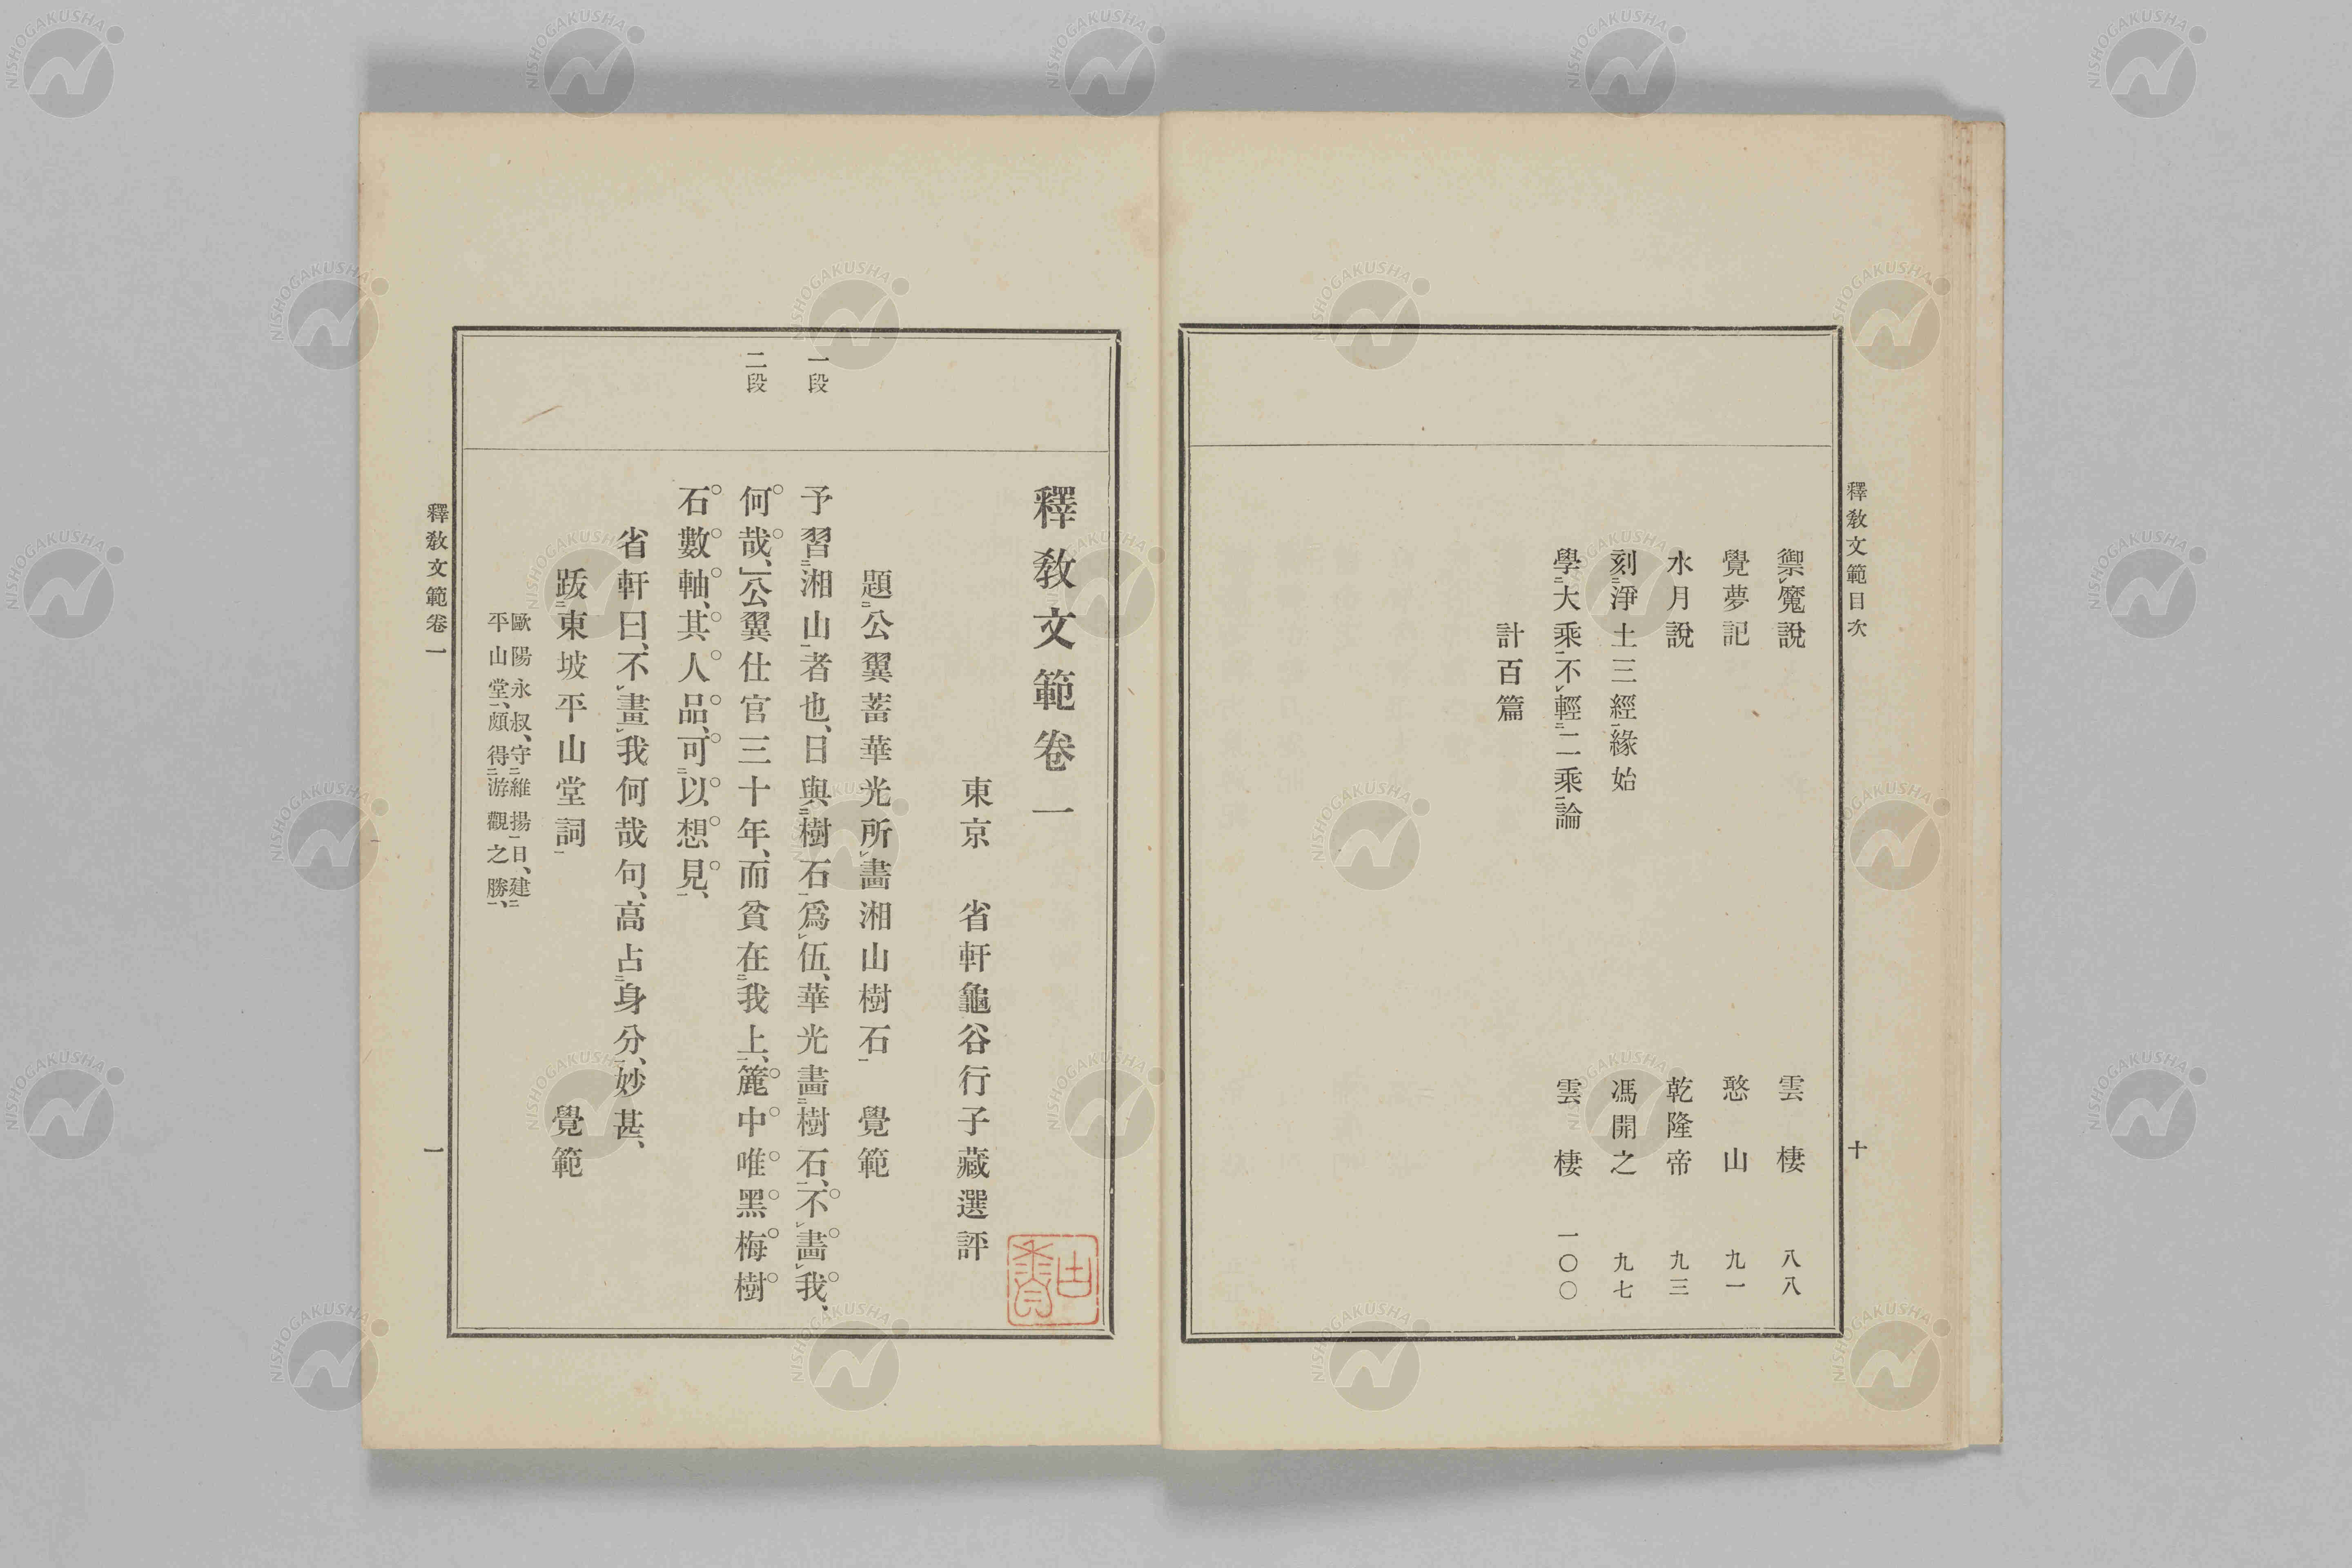 釋敎文範目次
十
禦魔說 雲棲 八八
覺夢記 憨山 九一
水月說 乾隆帝 九三
刻淨土三經緣始 馮開之 九七
學大乘不輕二乘論 雲棲 一〇〇
計百篇
釋敎文範卷一
東京 省軒龜谷行子藏選評
題公翼蓄華光所畫湘山樹石 覺範
一段
予習湘山者也、日與樹石爲伍、華光畫樹石、不畫我、
二段
何哉、公翼仕官三十年、而貧在我上、簏中唯黑梅樹
石數軸、其人品、可以想見、
省軒曰、不畫我何哉句、高占身分、妙甚、
跋東坡平山堂詞 覺範
歐陽永叔、守維揚日、建
平山堂、頗得游觀之勝、
釋敎文範卷一
一
NISHOGAKUSHA